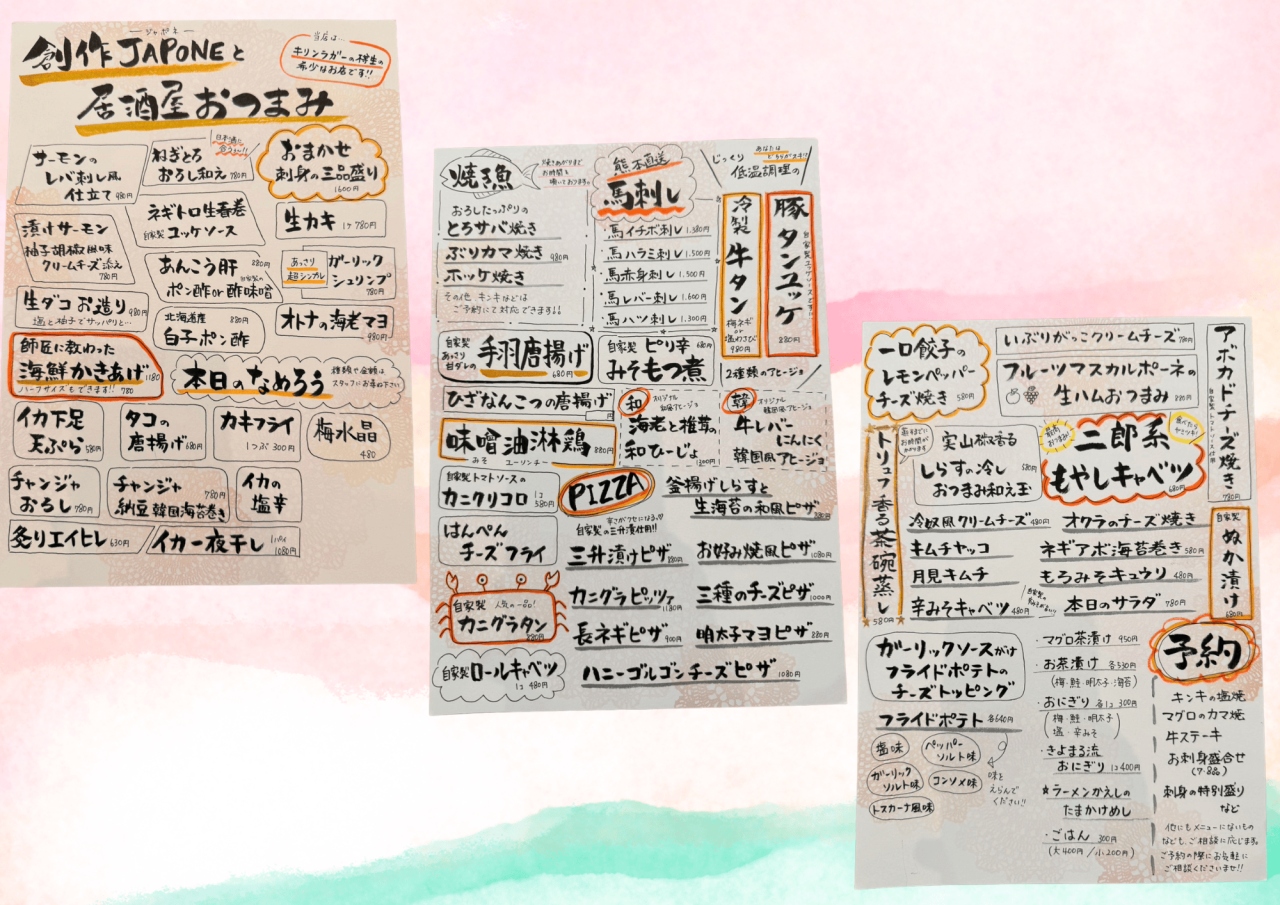 ージャポネー
創作JAPONEと
居酒屋おつまみ
当店は…
キリンラガーの樽生の
希少なお店です!!
サーモンの
レバ刺し風
仕立て 980円
日本酒に
合うー!!
ねぎとろ
おろし和え 780円
おまかせ
刺身の三品盛り
1600円
漬けサーモン
柚子胡椒風味
クリームチーズ添え
780円
ネギトロ生春巻
自家製ユッケソース
生カキ 1ヶ780円
あんこう肝 880円
ポン酢or酢味噌
あっさり
超シンプル
ガーリック
シュリンプ
780円
生ダコお造り 980円
塩と柚子でサッパリと…
北海道産 880円
白子ポン酢
オトナの海老マヨ
980円
師匠に教わった
海鮮かきあげ 1180
ハーフサイズもできます!! 780
本日のなめろう
種類や金額は
スタッフにお尋ね下さい
イカ下足
天ぷら 580円
タコの
唐揚げ 680円
カキフライ
1つぶ300円
梅水晶
480
チャンジャ
おろし 780円
チャンジャ 780円
納豆韓国海苔巻き
イカの
塩辛
炙りエイヒレ 630円
イカ一夜干し
1080円
焼き魚
焼きあがりまで
お時間を
頂いております。
おろしたっぷりの
とろサバ焼き
ぶりカマ焼き 980円
ホッケ焼き
その他 キンキなどは
ご予約にて対応できます!!
熊本直送
馬刺し
・馬イチボ刺し 1.380円
・馬ハラミ刺し 1.500円
・馬赤身刺し 1.500円
・馬レバー刺し 1.600円
・馬ハツ刺し 1.300円
あなたは
どちらがスキ!?
じっくり
低温調理の
冷製牛タン
梅ネギ
or
塩わさび
980円
豚タンユッケ
880円
自家製
あっさり
甘ダレの
手羽唐揚げ
680円
自家製 ピリ辛 680円
みそもつ煮
2種類のアヒージョ
ひざなんこつの唐揚げ
味噌油淋鶏 880円
みそ ユーリンチー
和 オリジナル
和風アヒージョ
海老と椎茸の
和ひーじょ
1200円
韓 オリジナル
韓国風アヒージョ
牛レバー
にんにく
韓国風アヒージョ
自家製トマトソースの
カニクリコロ 1コ
580円
はんぺん
チーズフライ
自家製 人気の一品!
カニグラタン
880円
自家製ロールキャベツ
1コ 480円
PIZZA
辛さがクセになる!!
自家製の三升漬仕用!!
三升漬けピザ 880円
カニグラピッツァ
1180円
長ネギピザ 900円
ハニーゴルゴンチーズピザ 1080円
釜揚げしらすと
生海苔の和風ピザ 980円
お好み焼風ピザ 1080円
三種のチーズピザ 1000円
明太子マヨピザ 880円
一口餃子の
レモンペッパー
チーズ焼き 580円
いぶりがっこクリームチーズ 780円
フルーツマスカルポーネの
生ハムおつまみ 880円
アボカドチーズ焼き
自家製トマトソース仕用
780円
トリュフ香る茶碗蒸し
580円
出来るまでに
お時間が
かかります
実山椒香る
しらすの冷し 580円
おつまみ和え玉
最高
おつまみ!
食べたら
ヤミツキ!
二郎系
もやしキャベツ
680円
冷奴風クリームチーズ 480円
キムチヤッコ
月見キムチ
辛みそキャベツ 480円
オクラのチーズ焼き
ネギアボ海苔巻き 580円
もろみそキュウリ 480円
本日のサラダ 780円
自家製
ぬか漬け
680円
ガーリックソースがけ
フライドポテトの
チーズトッピング
フライドポテト 各640円
塩味
ペッパー
ソルト味
ガーリック
ソルト味
コンソメ味
トスカーナ風味
味を
えらんで
ください!!
・マグロ茶漬け 950円
・お茶漬け 各530円
(梅・鮭・明太子・海苔)
・おにぎり 各1コ300円
(梅・鮭・明太子
塩・辛みそ)
・きよまる流
おにぎり 1コ400円
☆ラーメンかえしの
たまかけめし
・ごはん 300円
(大400円/小200円)
予約
キンキの塩焼
マグロのカマ焼
牛ステーキ
お刺身盛合せ
(7・8品)
刺身の特別盛り
など
他にもメニューにないもの
なども、ご相談に応じます。
ご予約の際にお気軽に
ご相談くださいませ!!